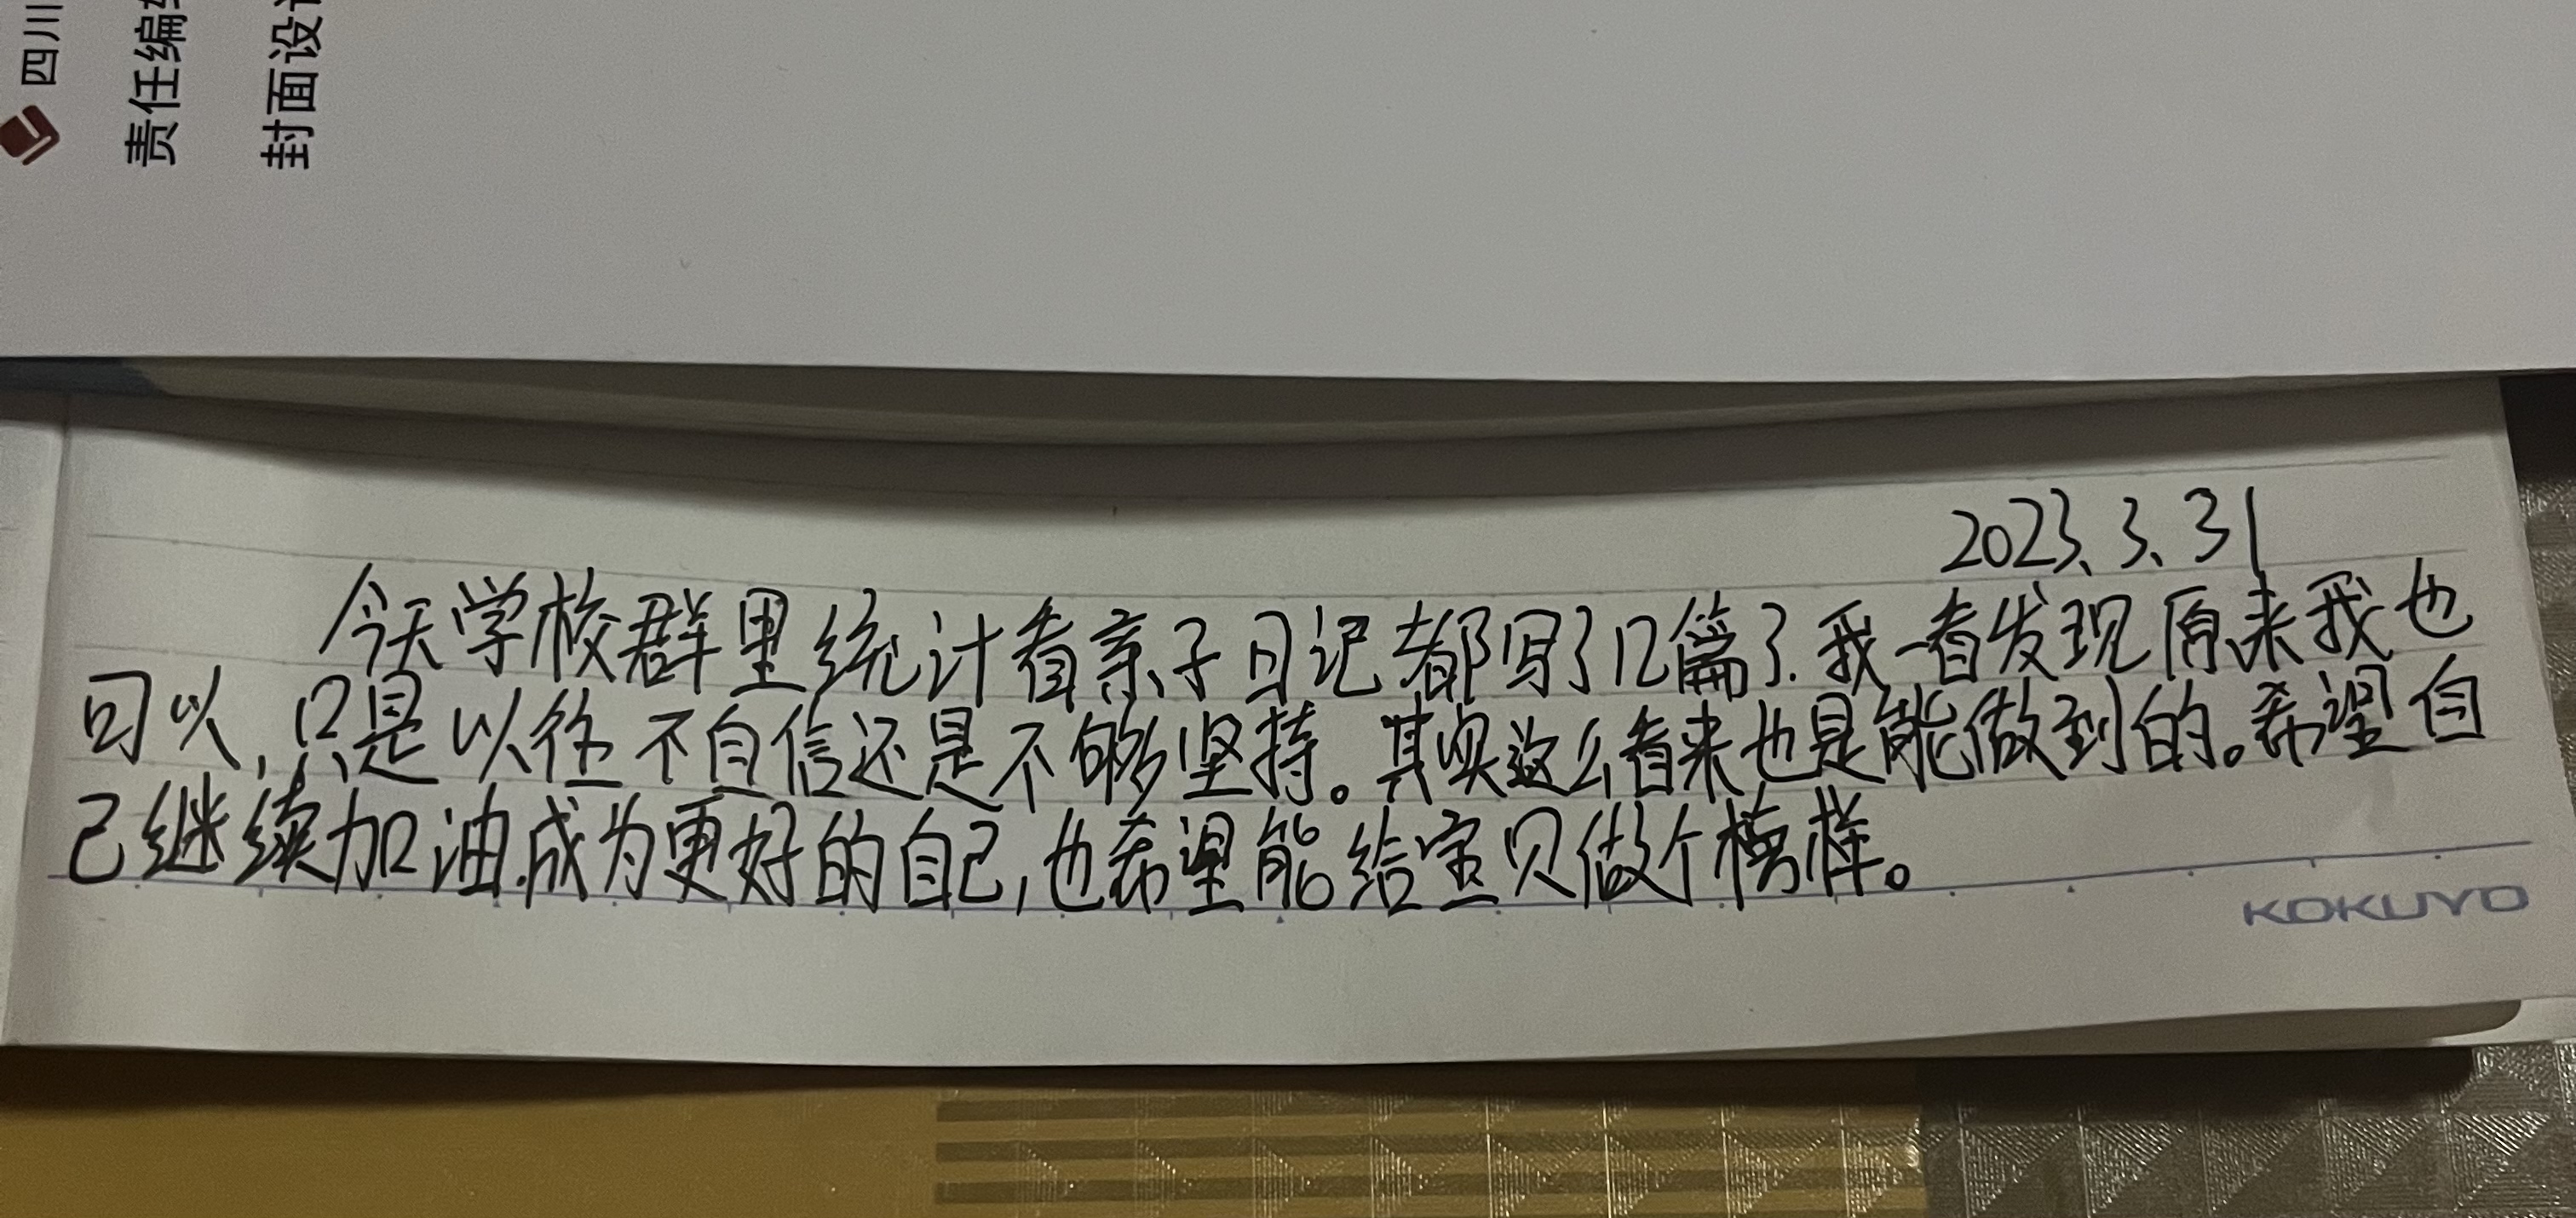 四川
责任编
封面设
2023.3.31
今天学校群里统计看亲子日记都写了几篇了.我一看发现原来我也
可以,只是以往不自信还是不够坚持。其实这么看来也是能做到的。希望自
己继续加油.成为更好的自己,也希望能给宝贝做个榜样。
KOKUYO